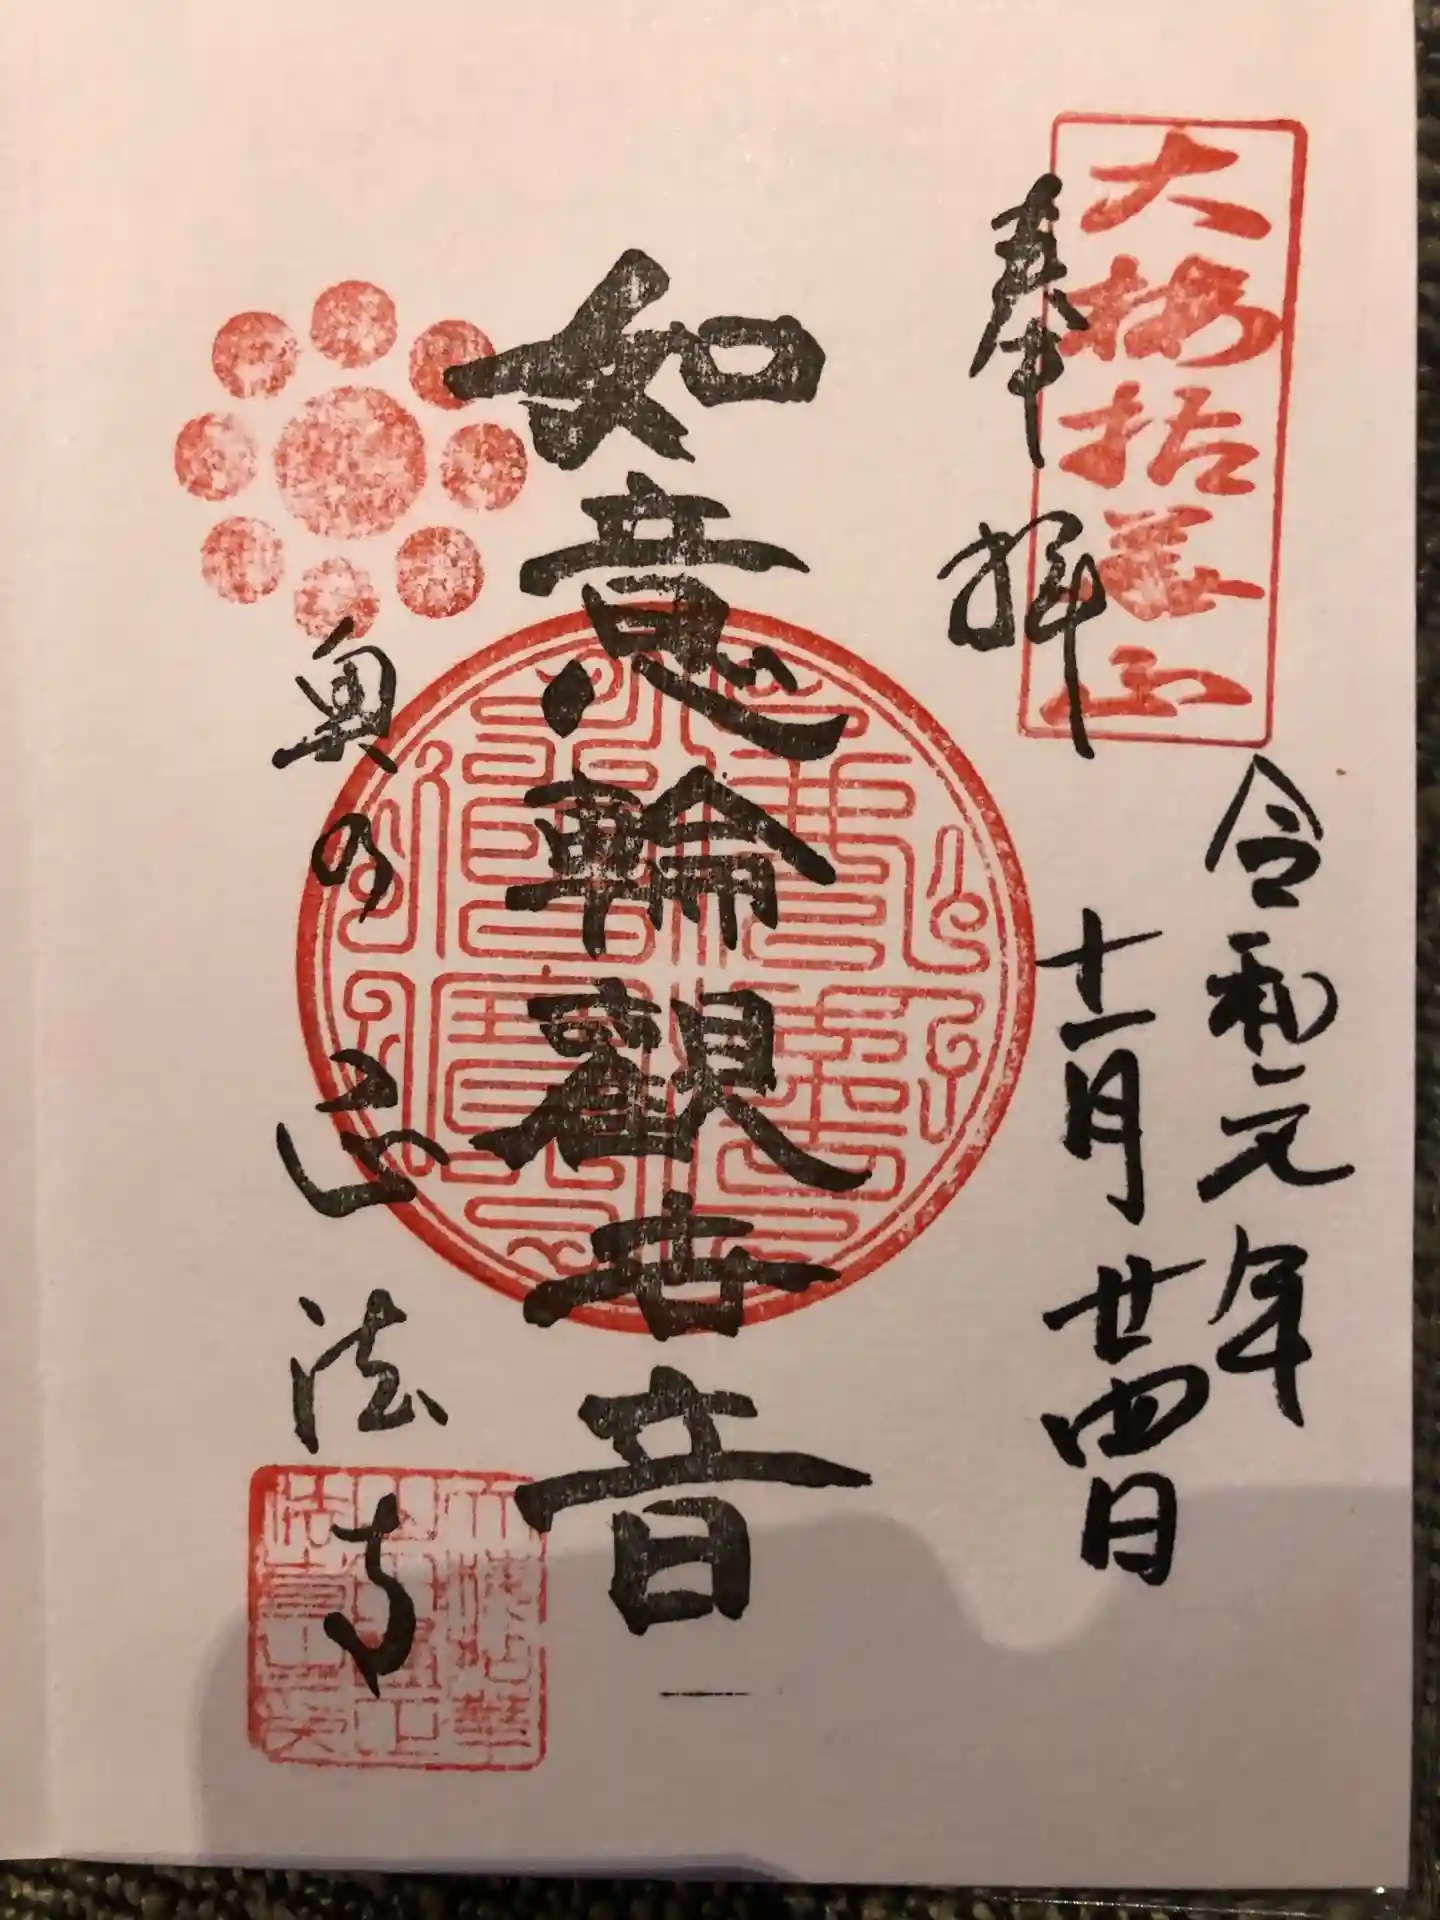 大梅拈華山
奉拝
令和元年
十一月廿四日
如意輪觀世音
奥の正法寺